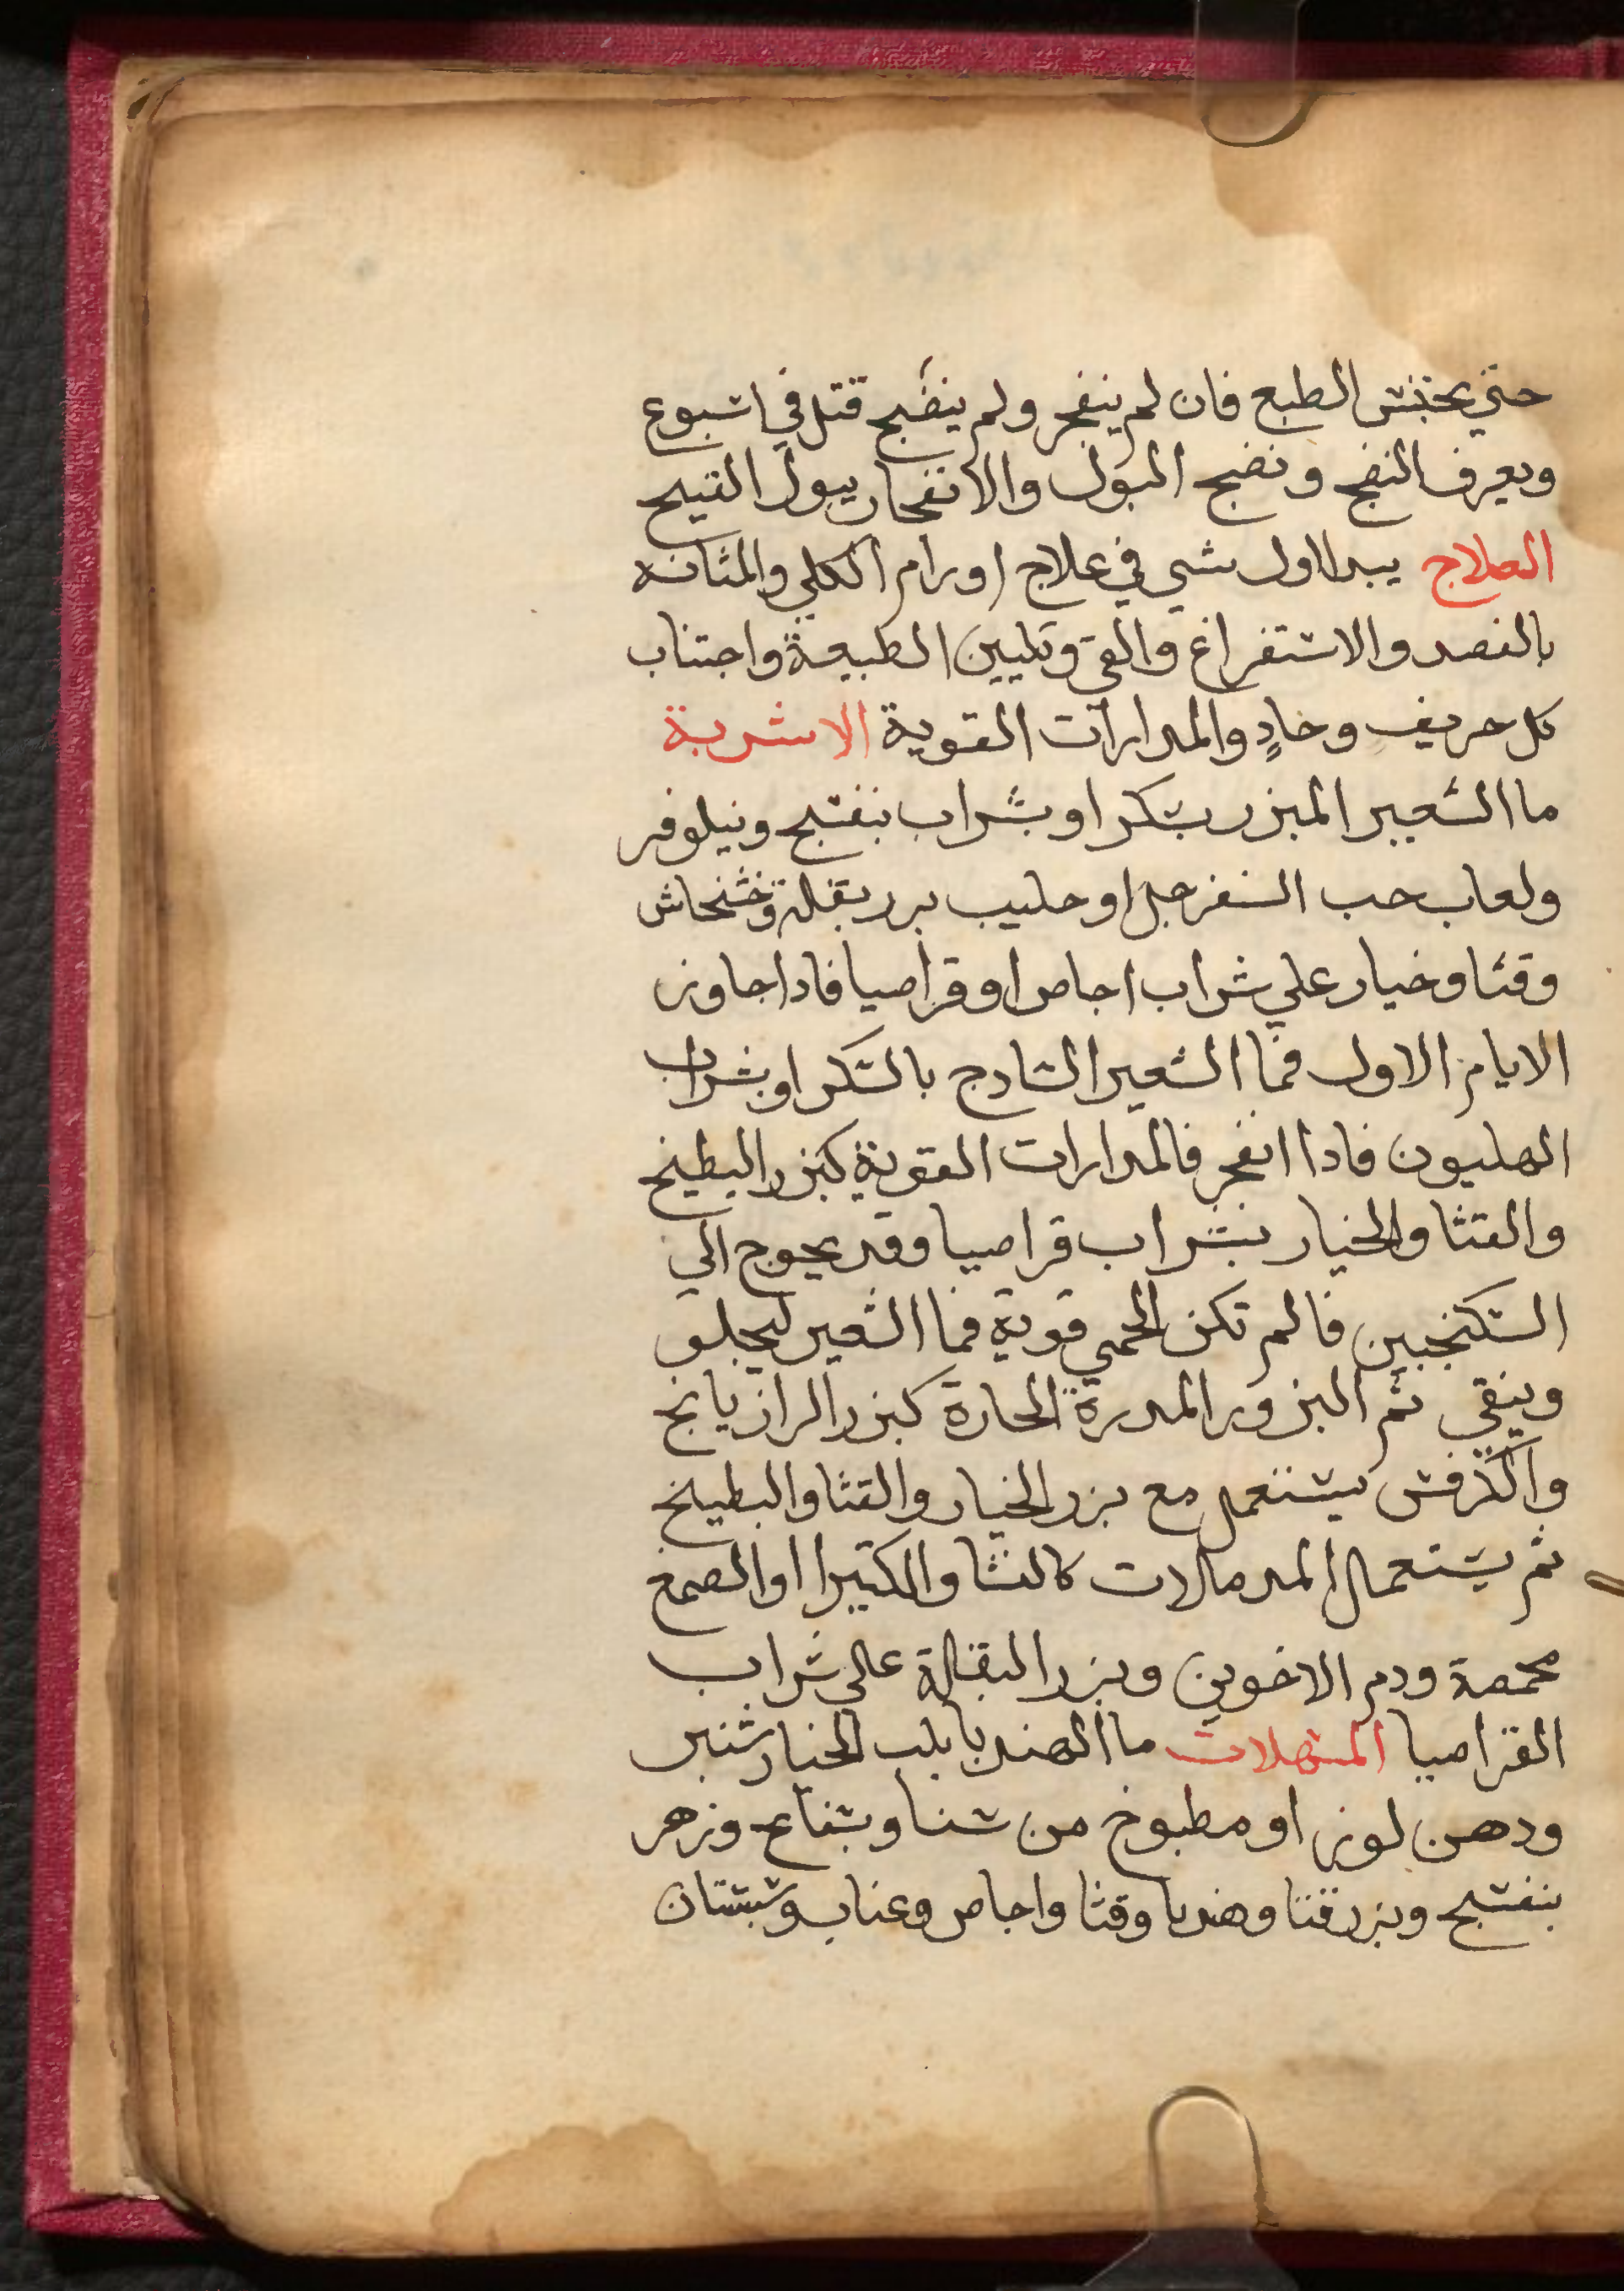 حتي يحتبس الطبع فان لم ينفجر ولم ينضج قتل في اسبوع
ويعرف النضج ونضج البول والانفجار ببول القيح
العلاج يبدا اول شي في علاج اورام الكلي والمثانه
بالفصد والاستفراغ والقي وتليين الطبيعة واجتناب
كل حريف وحادٍ والمدرارات القوية الاشربة
ما الشعير المبزر بسكر او بشراب بنفسج ونيلوفر
ولعاب حب السفرجل او حليب بزر بقلة وخشخاش
وقثا وخيار علي شراب اجاص او قراصيا فادا جاوز
الايام الاول فما الشعير السادج بالسكر او بشراب
الهليون فادا انفجر فالمدرارات القوية كبزر البطيخ
والقثا والخيار بشراب قراصيا وقد يحوج الي
السكنجبين فا لم تكن الحمي قوية فما الشعير ليجلو
وينقي ثم البزور المدرة الحارة كبزر الرازيانج
والكرفس يستعمل مع بزر الخيار والقثا والبطيخ
ثم يستعمل المدمالات كالنشا والكتيرا او الصمغ
محمصة ودم الاخوين وبزر البقلة علي شراب
القراصيا المسهلات ما الهندبا بلب الخيارشنبر
ودهن لوز او مطبوخ من سنا وبسفاع وزهر
بنفسج وبزر قثا وهندبا وقثا واجاص وعناب وسبستان